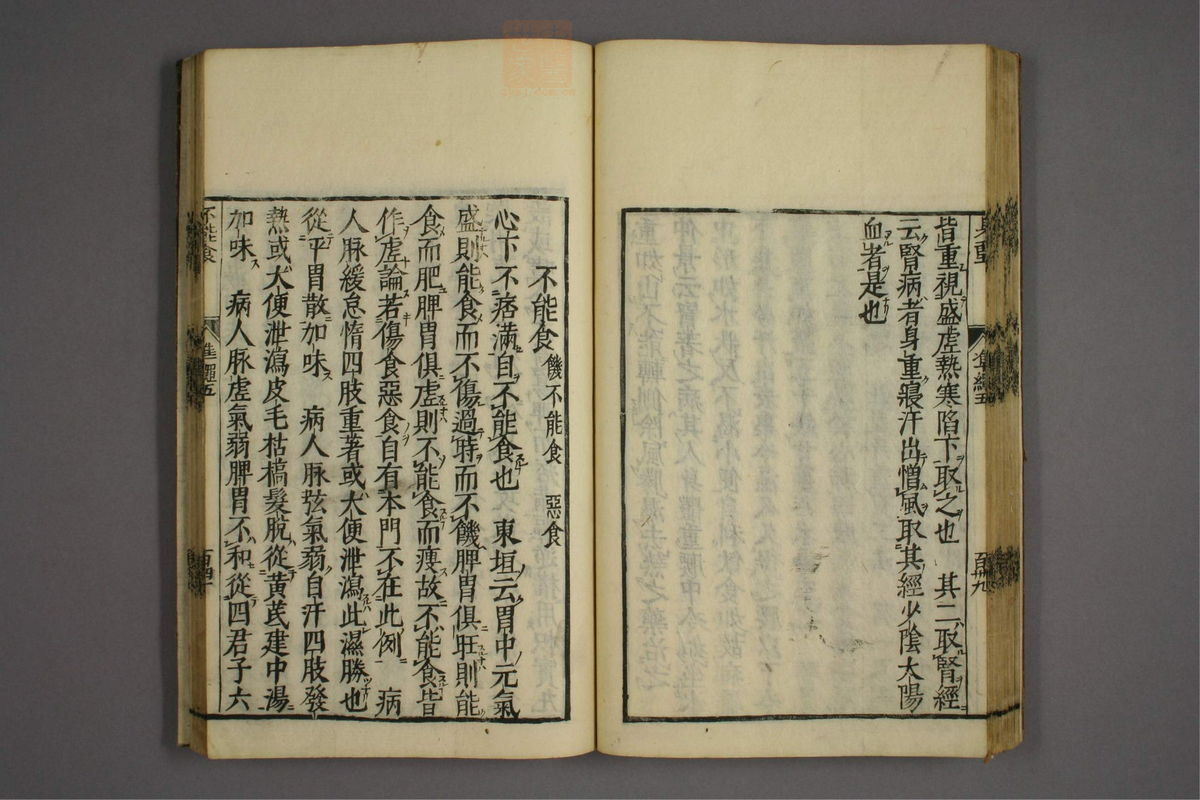 皆重視盛虛熱寒陷下取之也　其二取腎經
云腎病者身重寢汗出憎風取其經少陰太陽
血者是也
不能食　饑不能食　惡食
心下不痞滿自不能食也　東垣云胃中元氣
盛則能食而不傷過時而不饑脾胃俱旺則能
食而肥脾胃俱虛則不能食而瘦故不能食皆
作虛論若傷食惡食自有本門不在此例　病
人脉緩怠惰四肢重著或大便泄瀉此濕勝也
從平胃散加味　病人脉弦氣弱自汗四肢發
熱或大便泄瀉皮毛枯槁髮脫從黃芪建中湯
加味　病人脉虛氣弱脾胃不和從四君子六
不能食